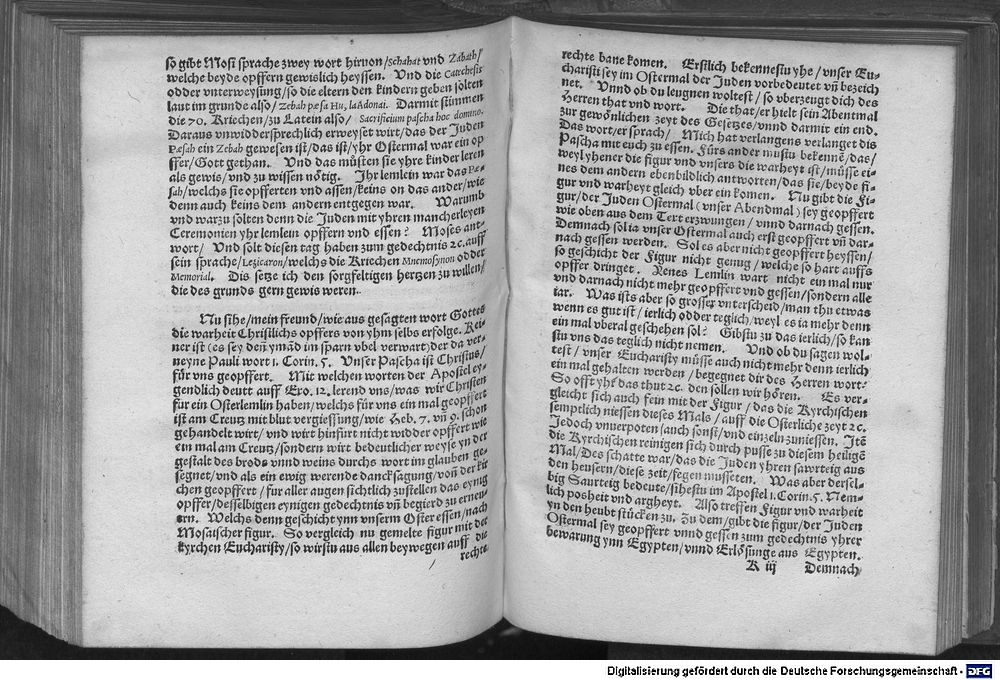 so gibt Mosi sprache zwey wort hiruon/Schahat vnd Zabath/
welche beyde opffern gewislich heyssen. Vnd die Catechesis
odder vnterweysung/so die eltern den kindern geben solten
laut im grunde also/Zebah pæsa Hu, laAdonai. Darmit stimmen
die 70. Kriechen/zu Latein also/ Sacrificium pascha hoc domino.
Daraus vnwiddersprechlich erweyset wirt/das der Juden
Pæsah ein Zebah gewesen ist/das ist/yhr Ostermal war ein op
ffer/Gott gethan. Vnd das můsten sie yhre kinder leren
als gewis/vnd zu wissen nötig. Ihr lemlein war das Pæ-
sah/welchs sie opfferten vnd assen/keins on das ander/wie
denn auch keins dem andern entgegen war. Warumb
vnd warzu solten denn die Juden mit yhren mancherleyen
Ceremonien yhr lemlein opffern vnd essen? Moses ant-
wort/ Vnd solt diesen tag haben zum gedechtnis ꝛc. auff
sein sprache/Lezicaron/welchs die Kriechen Mnemosynon odder
Memorial. Dis setze ich den sorgfeltigen hertzen zu willen/
die des grunds gern gewis weren.
Nu sihe/mein freund/wie aus gesagten wort Gottes
die warheit Christlichs opffers von yhm selbs erfolge. Kei-
ner ist (es sey den ymãd im sparn vbel verwart) der da ver-
neyne Pauli wort 1. Corin. 5. Vnser Pascha ist Christus/
für vns geopffert. Mit welchen worten der Apostel ey-
gendlich deutt auff Exo. 12. lerend vns/was wir Christen
fur ein Osterlemlin haben/welchs für vns ein mal geopffert
ist am Creutz mit blut vergiessung/wie Heb. 7. vñ 9. schon
gehandelt wirt/vnd wirt hinfurt nicht widder opffert wie
ein mal am Creutz/sondern wirt bedeutlicher weyse yn der
gestalt des brods vnnd weins durchs wort im glauben ge-
segnet/vnd als ein ewig werende dancksagung/von der kir
chen geopffert/für aller augen sichtlich zustellen das eynig
opffer/desselbigen eynigen gedechtnis vñ begierd zu erneu-
ern. Welchs denn geschicht ynn vnserm Oster essen/nach
Mosaischer figur. So vergleich nu gemelte figur mit der
kyrchen Eucharisty/so wirstu aus allen beywegen auff die
rechte
rechte bane komen. Erstlich bekennestu yhe/vnser Eu-
charisti sey im Ostermal der Juden vorbedeutet vñ bezeich
net. Vnnd ob du leugnen woltest/so vberzeugt dich des
Herren that vnd wort. Die that/er hielt sein Abentmal
zur gewönlichen zeyt des Gesetzes/vnnd darmit ein end.
Das wort/er sprach/ Mich hat verlangens verlanget dis
Pascha mit euch zu essen. Fürs ander mustu bekennẽ/das/
weyl yhener die figur vnd vnsers die warheyt ist/můsse ei-
nes dem andern ebenbildlich antworten/das sie/beyde fi-
gur vnd warheyt gleich vber ein komen. Nu gibt die Fi-
gur/der Juden Ostermal (vnser Abendmal) sey geopffert
wie oben aus dem Text erzwungen/vnnd darnach gessen.
Demnach sol ia vnser Ostermal auch erst geopffert vñ dar-
nach gessen werden. Sol es aber nicht geopffert heyssen/
so geschicht der Figur nicht genug/welche so hart auffs
opffer dringet. Ihenes Lemlin wart nicht ein mal nur
vnd darnach nicht mehr geopffert vnd gessen/sondern alle
iar. Was ists aber so grosser vnterscheid/man thu etwas
wenn es gut ist/ierlich odder teglich/weyl es ia mehr denn
ein mal vberal geschehen sol? Gibstu zu das ierlich/so kan
stu vns das teglich nicht nemen. Vnd ob du sagen wol-
test/vnser Eucharisty můsse auch nicht mehr denn ierlich
ein mal gehalten werden/begegnet dir des Herren wort:
So offt yhr das thut ꝛc. den sollen wir hören. Es ver-
gleicht sich auch fein mit der Figur/das die Kyrchischen
semptlich niessen dieses Mals/auff die Osterliche zeyt ꝛc.
Jedoch vnuerpoten/auch sonst/vnd einzeln zuniessen. Itẽ
die Kyrchischen reinigen sich durch pusse zu diesem heiligẽ
Mal/Des schatte war/das die Juden yhren sawrteig aus
den heusern/diese zeit/fegen musseten. Was aber dersel-
big Saurteig bedeute/sihestu im Apostel 1. Corin. 5. Nem-
lich posheit vnd argheyt. Also treffen Figur vnd warheit
yn den heubt stücken zu. Zu dem/gibt die figur/der Juden
Ostermal sey geopffert vnnd gessen zum gedechtnis yhrer
bewarung ynn Egypten/vnnd Erlösunge aus Egypten.
K iij Demnach
Digitalisierung gefördert durch die Deutsche Forschungsgemeinschaft - DFG